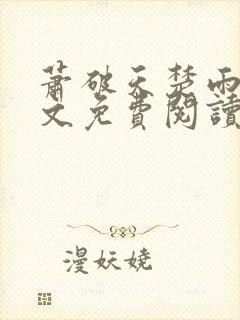 蕭破天楚雨
文免費閱讀
漫妖嬈